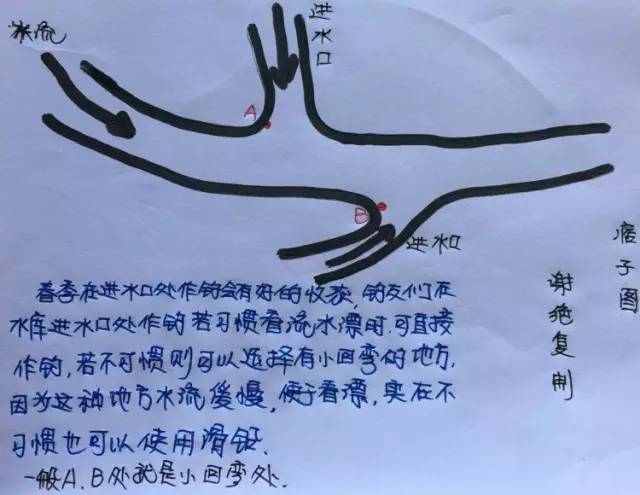 水流
进水口
进水口
春季在进水口处作钓会有好的收获,钓友们在
水库进水口处作钓若习惯看流水漂时.可直接
作钓,若不习惯则可以选择有小回弯的地方,
因为这种地方水流缓慢,便于看漂,实在不
习惯也可以使用滑铅.
一般A.B处就是小回弯处.
A
B
谢绝复制
子图